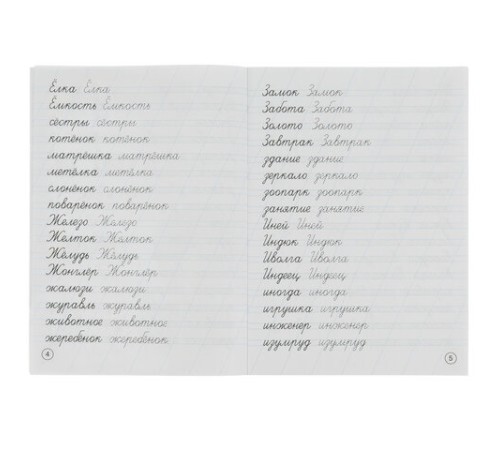 Ёлка Ёлка
Ёмкость Ёмкость
сёстры сёстры
котёнок котёнок
матрёшка матрёшка
метёлка метёлка
слонёнок слонёнок
поварёнок поварёнок
Железо Железо
Желток Желток
Жёлудь Жёлудь
Жонглёр Жонглёр
жалюзи жалюзи
журавль журавль
животное животное
жеребёнок жеребёнок
4
Замок Замок
Забота Забота
Золото Золото
Завтрак Завтрак
здание здание
зеркало зеркало
зоопарк зоопарк
занятие занятие
Иней Иней
Индюк Индюк
Иволга Иволга
Индеец Индеец
иногда иногда
игрушка игрушка
инженер инженер
изумруд изумруд
5